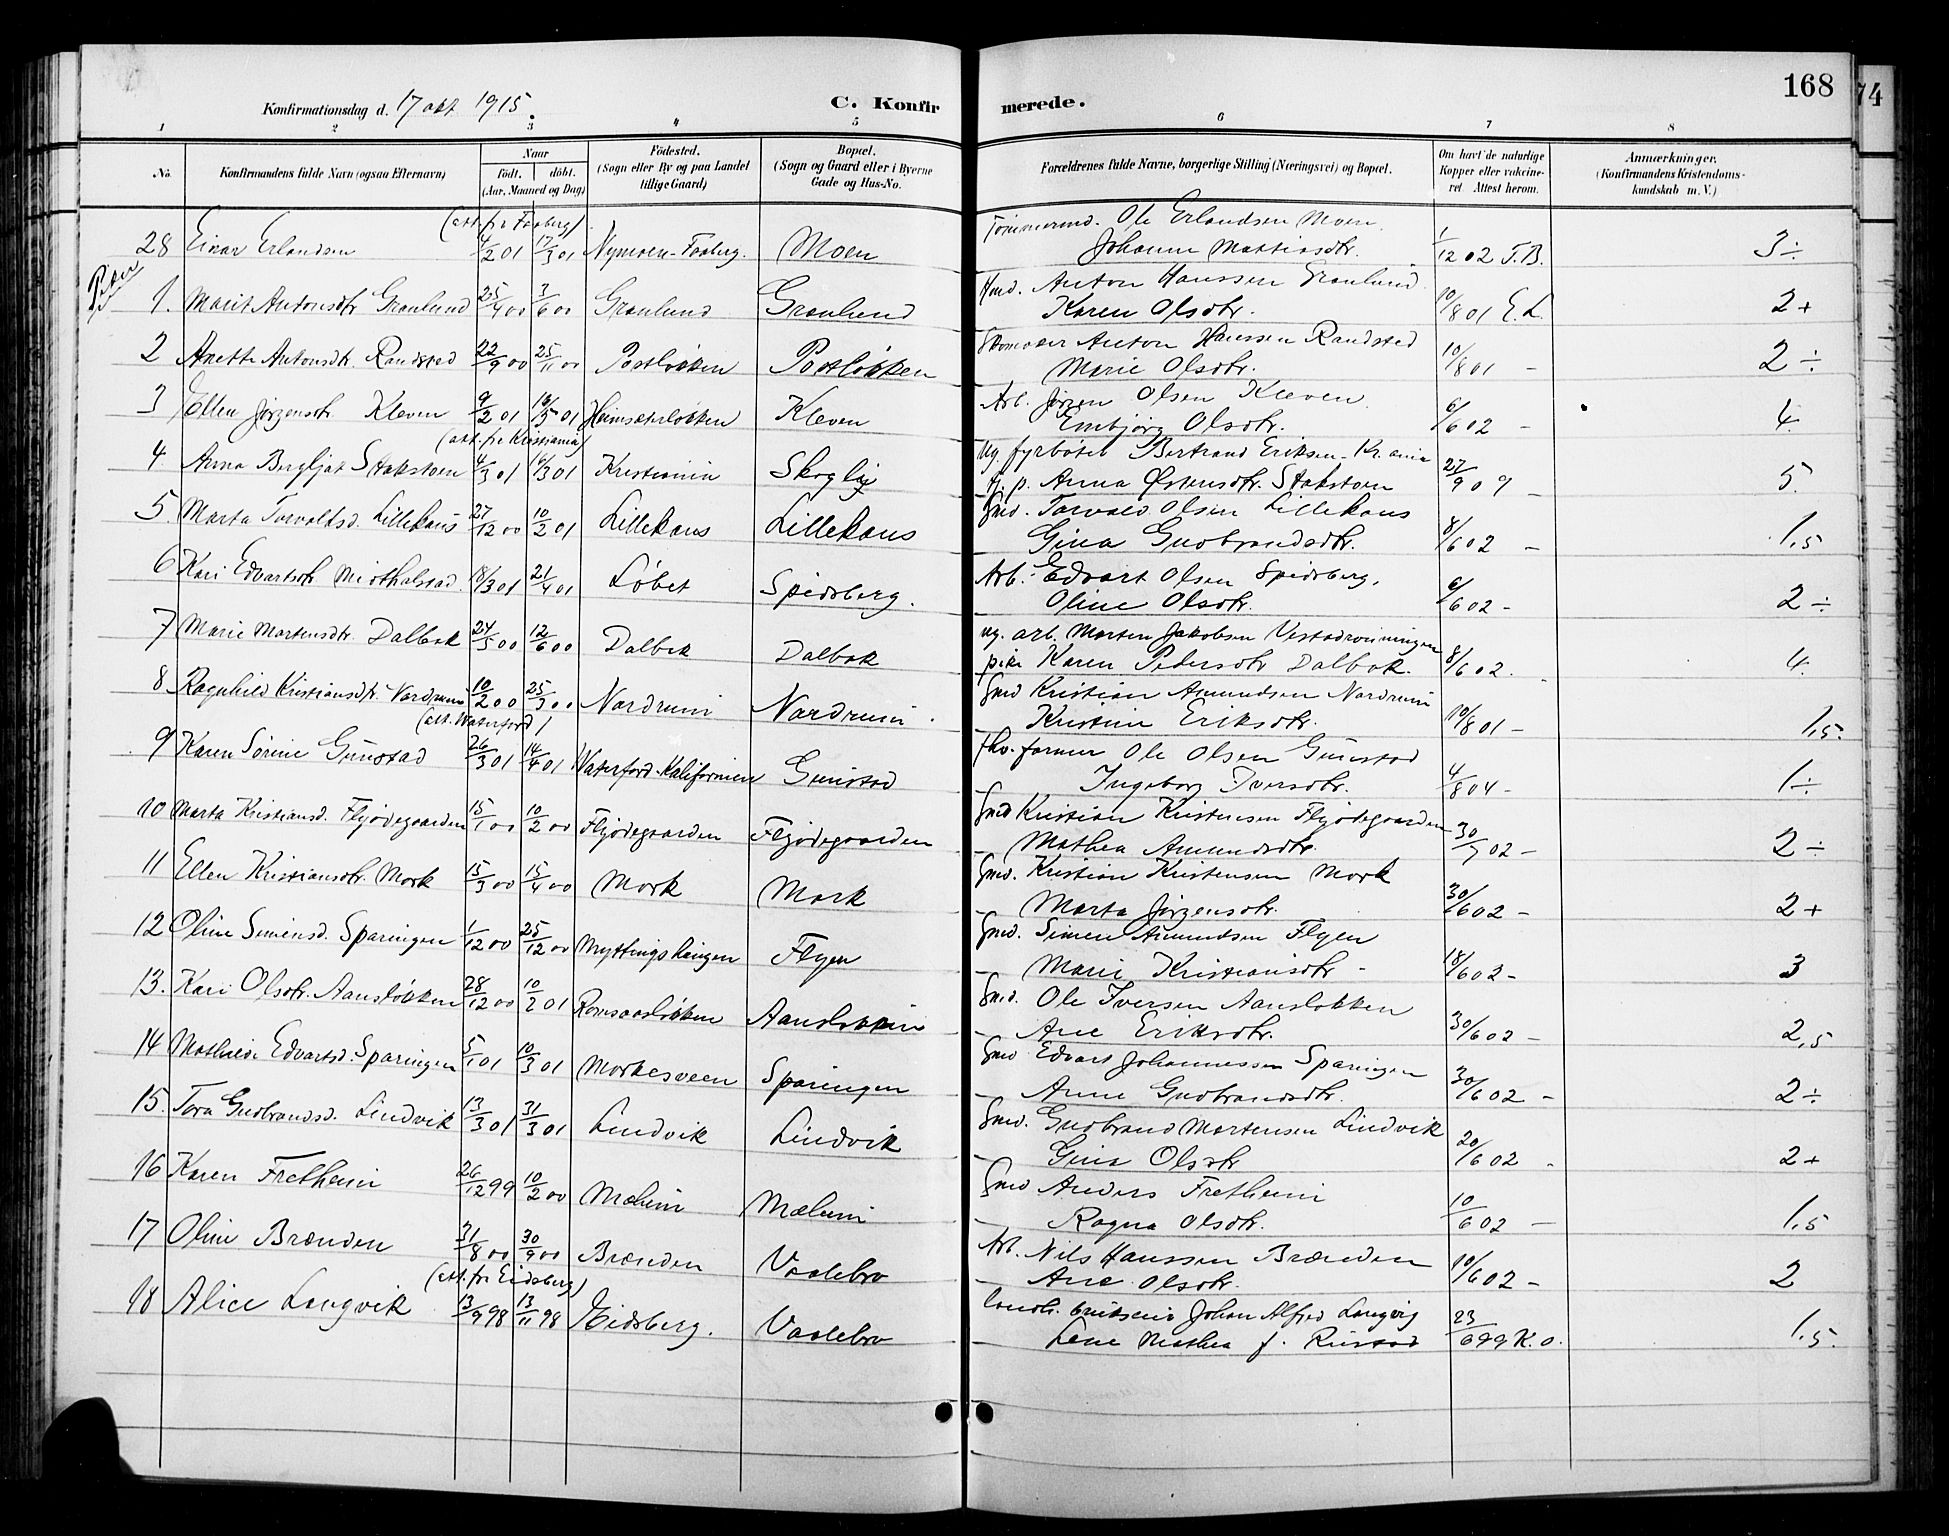 168
74
Konfirmationsdag d. 17 okt 1915. C. Konfirmerede.
1 2 3 4 5 6 7 8
No. Konfirmandens fulde Navn (ogsaa Efternavn) Naar født. døbt. (Aar, Maaned og Dag) Fødested. (Sogn eller By og paa Landet tillige Gaard) Bopæl. (Sogn og Gaard eller i Byerne Gade og Hus-No. Forældrenes fulde Navne, borgerlige Stilling (Næringsvei) og Bopæl. Om havt de naturlige Kopper eller vakcineret. Attest herom. Anmærkninger. (Konfirmandens Kristendomskundskab m. V.)
(att. fr Faaberg)
28 Einar Erlandsen 4/2 01 17/3 01 Nymoen-Faaberg. Moen Tømmermd. Ole Erlandsen Moen
Johanne Mattiasdtr. 1/12 02 T.B. 3÷
Piker
1. Marit Antonsdtr Grønlund 25/4 00 3/6 00 Grønlund Grønlund Hmd. Anton Hanssen Grønlund
Karen Olsdtr. 10/8 01 E.L. 2+
2 Anette Antonsdtr. Randsted 22/9 00 25/11 00 Postløkken Postløkken Skomaker Anton Hanssen Randsted
Marie Olsdtr. 10/8 01 - 2÷
3 Ellen Jørgensdtr. Kleven 9/2 01 19/5 01 Heimsæterløkken Kleven Arb. Jørgen Olsen Kleven
Embjørg Olsdtr. 6/6 02 - 4
(att. fr Kristiania)
4 Anna Bergljot Stakstoen 4/3 01 16/3 01 Kristiania Skoglig Ug. fyrbøter Bertrand Eriksen - Kr.ania
tj. p. Anna Østensdtr. Stakstoen 27/9 09 - 5.
5. Marta Torvaldsd. Lillehaus 27/12 00 10/2 01 Lillehaus Lillehaus Gmd. Torvald Olsen Lillehaus
Gina Gudbrandsdtr. 8/6 02 - 1,5
6 Kari Edvartsdtr Midthalstad 18/3 01 21/4 01 Løbet Spidsberg. Arb. Edvart Olsen Spidsberg.
Oline Olsdtr. 6/6 02 - 2÷
7 Marie Martensdtr. Dalbak 24/5 00 12/6 00 Dalbak Dalbak Ug. arb. Morten Jakobsen Vestadrønningen
pike Karen Pedersdtr Dalbak. 8/6 02. 4.
8 Ragnhild Kristiansdtr. Nordrum 10/2 00 25/3 00 Nordrum Nordrum. Gmd Kristian Amundsen Nordrum
Kristine Eriksdtr. 10/8 01 - 1,5.
(att. Waterford)
9 Karen Sørine Gunstad 26/3 01 14/4 01 Waterford-Kalifornien Gunstad fhv. farmer Ole Olsen Gunstad
Ingeborg Iversdtr. 4/8 04 - 1÷
10 Marta Kristiansd. Fløjdegaarden 15/1 00 10/2 00 Fløjdegaarden Fløjdegaarden Gmd Kristian Kristensen Fløjdegaarden
Mathea Amundsdtr. 30/5 02 - 2÷
11 Ellen Kristiansdtr. Mork 15/3 00 15/4 00 Mork Mork Gmd. Kristian Kristensen Mork
Marta Jørgensdtr. 30/6 02 - 2+
12 Oline Simensd. Sparingen 1/12 00 25/12 00 Myttingshaugen Flyen Gmd. Simen Amundsen Flyen
Marie Kristiansdtr - 18/6 02 - 3
13. Kari Olsdtr. Aansløkken 28/12 00 10/2 01 Romsaasløkken Aansløkken Gmd. Ole Iversen Aansløkken
Ane Eriksdtr. 30/6 02 - 2,5
14 Mathilde Edvartsd. Sparingen 5/1 01 10/3 01 Morkesveen Sparingen Gmd Edvart Johannessen Sparingen
Anne Gudbrandsdtr. 30/6 02 - 2÷
15. Tora Gudbrandsd. Lindvik 13/3 01 31/3 01 Lindvik Lindvik Gmd. Gudbrand Mortensen Lindvik
Gina Olsdtr 20/6 02 2+
16 Karen Fretheim 26/12 99 10/2 00 Mælum Mælum Gmd Anders Fretheim
Ragna Olsdtr. 10/6 02 - 1,5
17 Oline Brænden 31/8 00 30/9 00 Brænden Vaalebro Arb. Nils Hanssen Brænden
Ane Olsdtr. 10/6 02 - 2
(att. fr Eidsberg)
18 Alice Langvik 13/9 98 13/11 98 Eidsberg. Vaalebro Johan Alfred Langvig
Lene Mathea f. Rustad 23/6 99 K.O. 1,5.